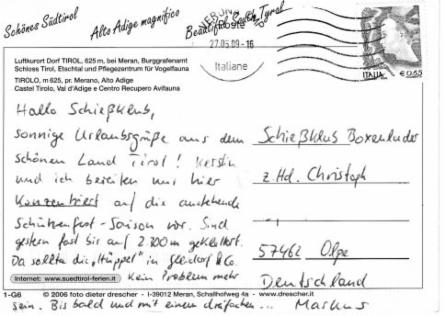 Schönes Südtirol
Alto Adige magnifico
Beautiful South Tyrol
Poste
27.05.09-16
Italiane
ITALIA €0,65
Luftkurort Dorf TIROL, 625 m, bei Meran, Burggrafenamt
Schloss Tirol, Etschtal und Pflegezentrum für Vogelfauna
TIROLO, m 625, pr. Merano, Alto Adige
Castel Tirolo, Val d'Adige e Centro Recupero Avifauna
Hallo Schießklub,
sonnige Urlaubsgrüße aus dem
schönen Land Tirol! Kerstin
und ich bereiten uns hier
konzentriert auf die anstehende
Schützenfest-Saison vor. Sind
gestern fast bis auf 2300 m geklettert.
Da sollte die "Hüppel" in & Co.
kein Problem mehr
sein. Bis bald und mit einem dreifachen... Markus
Schießklub Boxenluder
z. Hd. Christoph
57462 Olpe
Deutschland
Internet: www.suedtirol-ferien.it
1-G6 © 2006 foto dieter drescher - I-39012 Meran, Schallhofweg 4a - www.drescher.it